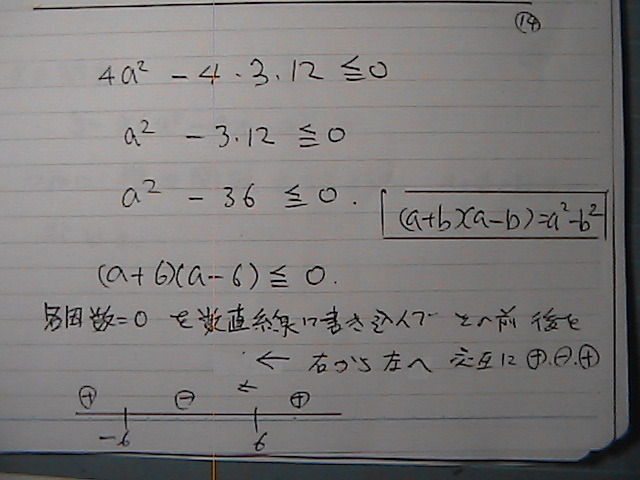 (14)
4a² - 4・3・12 ≦ 0
a² - 3・12 ≦ 0
a² - 36 ≦ 0.
(a+b)(a-b)=a²-b²
(a+6)(a-6) ≦ 0.
因数=0 を数直線に書き込んで その前後を
← 右から左へ 交互に ⊕.⊖.⊕
⊕ ⊖ ← ⊕
-6 6